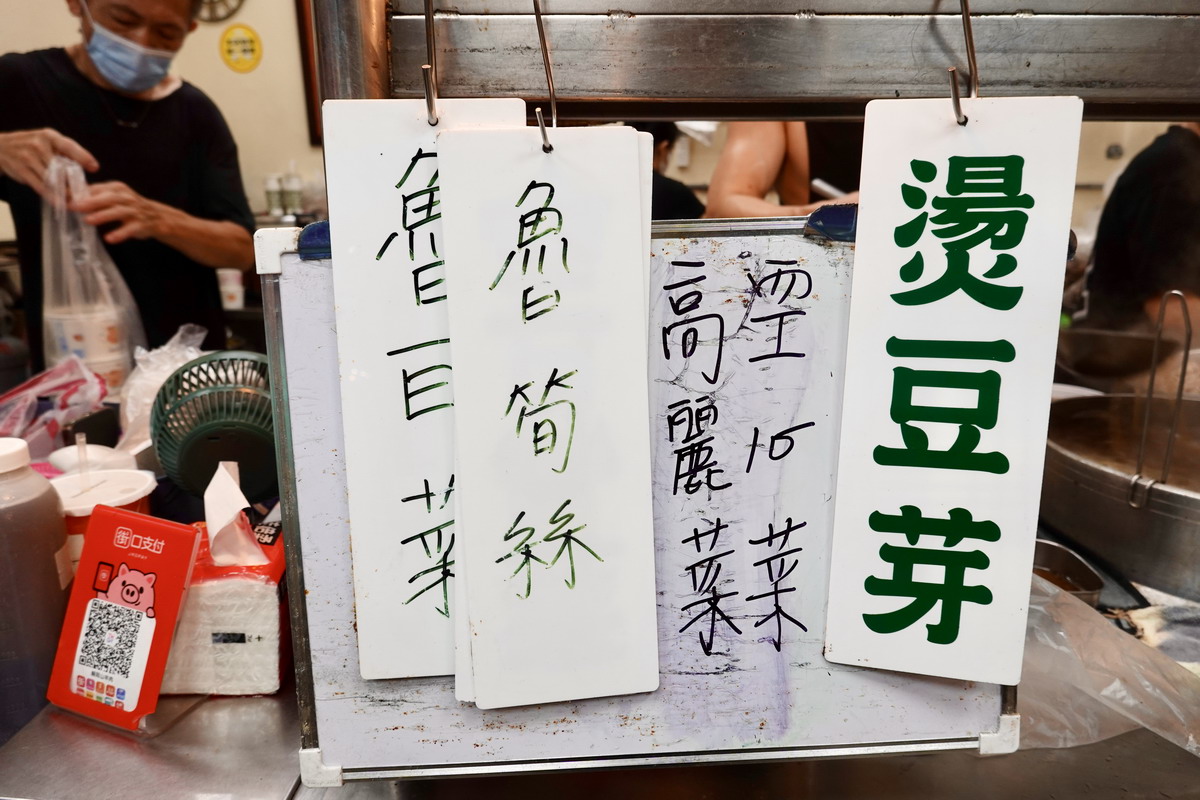 燙豆芽
空心菜
高麗菜
魯筍絲
魯
菜
街口支付